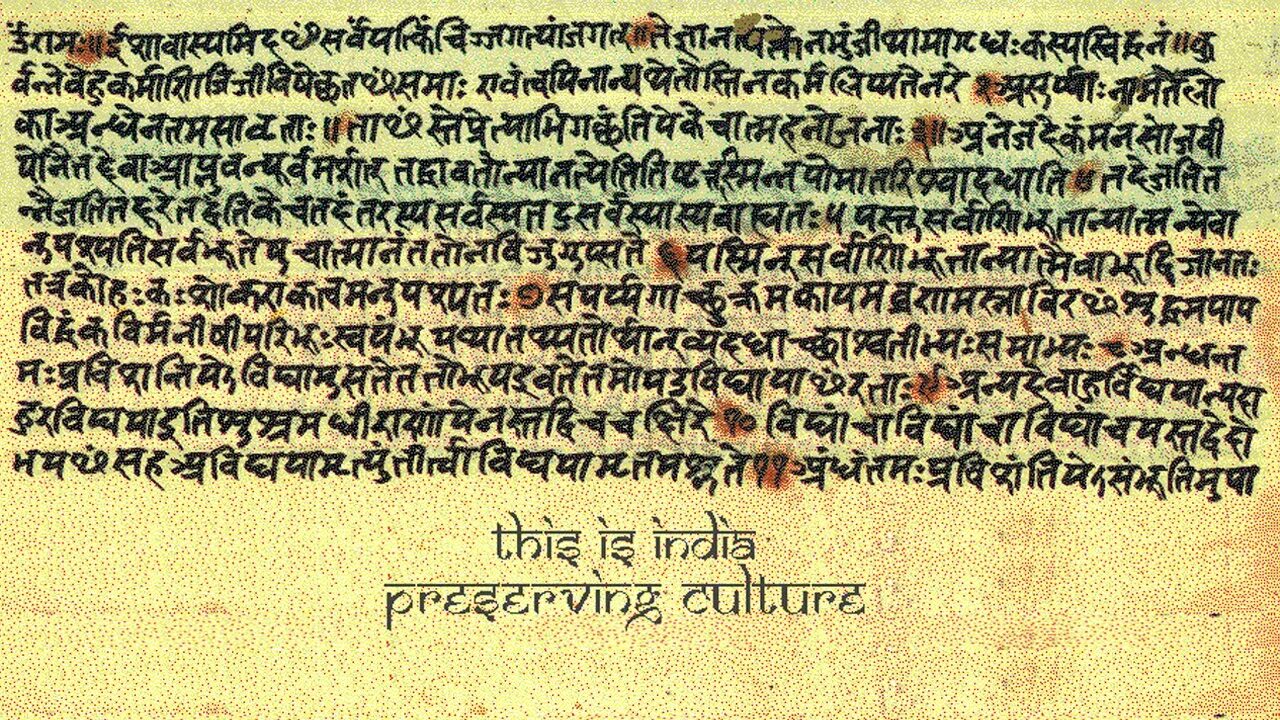 उँरामः॥ईशावास्यमिदꣳसर्वंयत्किंचिज्जगत्यांजगत्॥तेनत्यक्तेनभुंजीथामागृधःकस्यस्विद्धनं॥कु
र्वन्नेवेहकर्माणिजिजीविषेछतꣳसमाः एवंत्वयिनान्यथेतोस्तिनकर्मलिप्यतेनरे २ असुर्य्याःनामतेलो
काअन्धेनतमसावृताः॥ताꣳस्तेप्रेत्याभिगछंतियेकेचात्महनोजनाः ३॥अनेजदेकंमनसोजवी
योनैनद्देवाआप्नुवन्पूर्वमर्शत् तद्धावतोन्यानत्येतितिष्ठत्तस्मिन्नपोमातरिश्वादधाति ४ तदेजतित
न्नैजतितद्दूरेतद्वंतिकेचतदंतरस्यसर्वस्यतदुसर्वस्यास्यबाह्यतः ५ यस्तुसर्वाणिभूतान्यात्मन्येवा
नुपश्यतिसर्वभूतेषुचात्मानंततोनविजुगुप्सते ६ यस्मिन्सर्वाणिभूतान्यात्मैवाभूद्विजानतः
तत्रकोहःकःशोकएकत्वमनुपश्यतः ७ सपर्य्यगाच्छुक्रमकायमव्रणमस्नाविरꣳशुद्धमपाप
विद्धंकविर्मनीषीपरिभूःस्वयंभूयथातथ्यतोर्थान्व्यदधाच्छाश्वतीभ्यःसमाभ्यः ८ अन्धन्त
मःप्रविशन्तियेऽविद्यामुपासतेततोभूयइवतेतमोयउविद्यायाꣳरताः ९ अन्यदेवाहुर्विद्ययान्यदा
हुरविद्ययाइतिशुश्रुमधीराणांयेनस्तद्विचचक्षिरे १० विद्यांचाविद्यांचाविद्यांचयस्तद्वेदो
भयꣳसहअविद्ययामृत्युंतीर्त्वाविद्ययामृतमश्नुते ११ अंधंतमःप्रविशंतियेऽसंभूतिमुपा
this is india
preserving culture